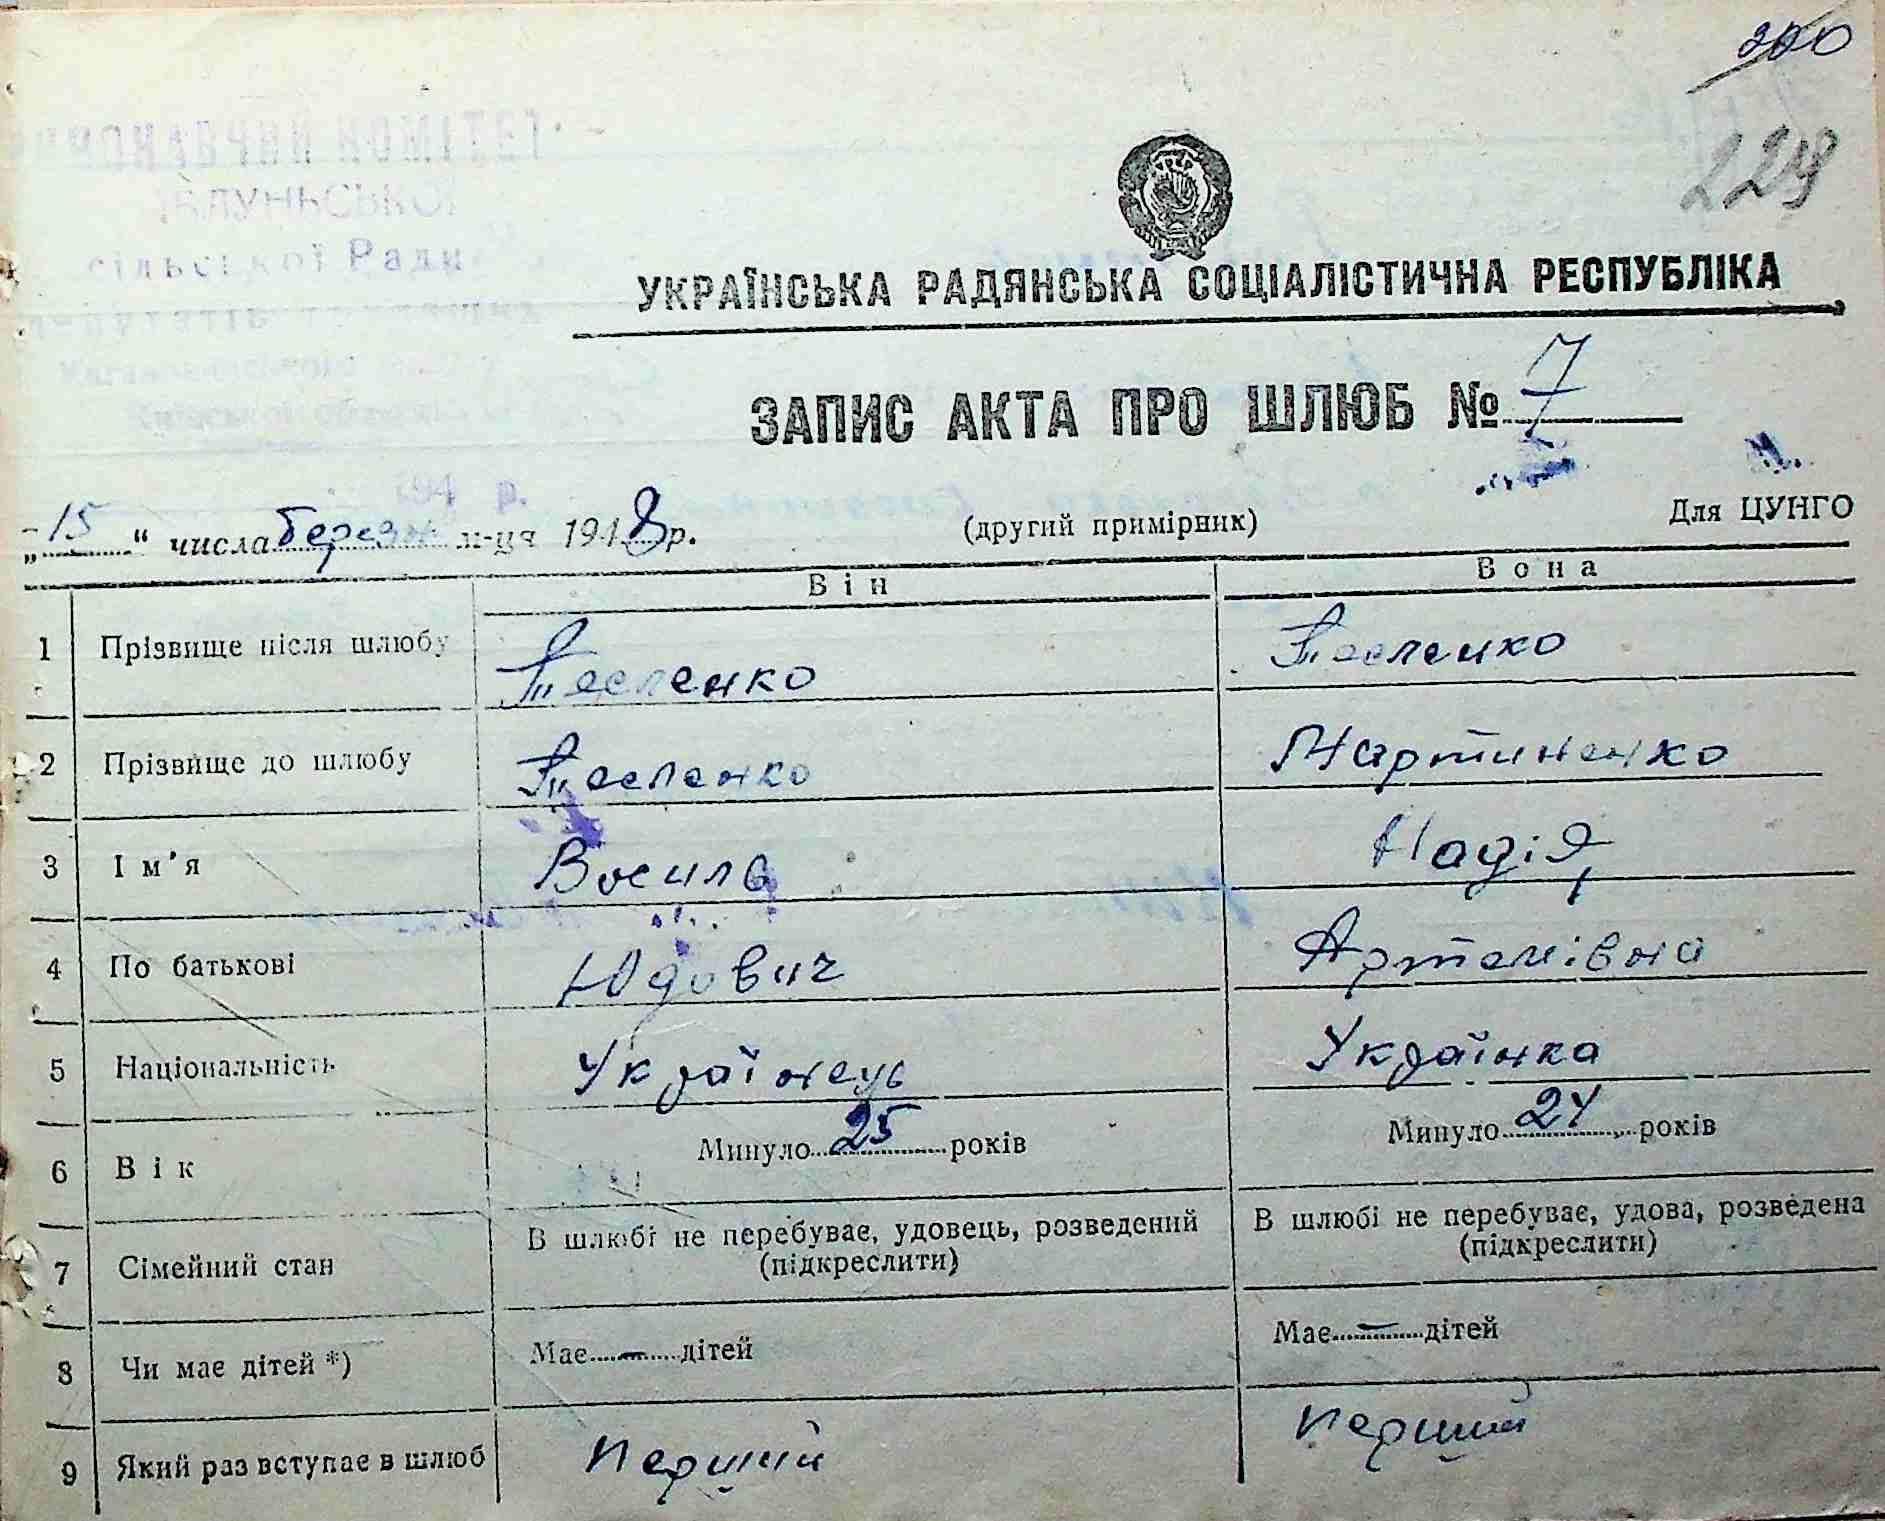 200
229
сільської Ради
УКРАЇНСЬКА РАДЯНСЬКА СОЦІАЛІСТИЧНА РЕСПУБЛІКА
ЗАПИС АКТА ПРО ШЛЮБ № 7
„15“ числа березня м-ця 1948 р. (другий примірник) Для ЦУНГО
Він Вона
1 Прізвище після шлюбу Тесленко Тесленко
2 Прізвище до шлюбу Тесленко Мартиненко
3 Ім'я Василь Надія
4 По батькові Юдович Артемівна
5 Національність Українець Українка
6 Вік Минуло 25 років Минуло 24 років
7 Сімейний стан В шлюбі не перебуває, удовець, розведений (підкреслити) В шлюбі не перебуває, удова, розведена (підкреслити)
8 Чи має дітей *) Має — дітей Має — дітей
9 Який раз вступає в шлюб перший перший